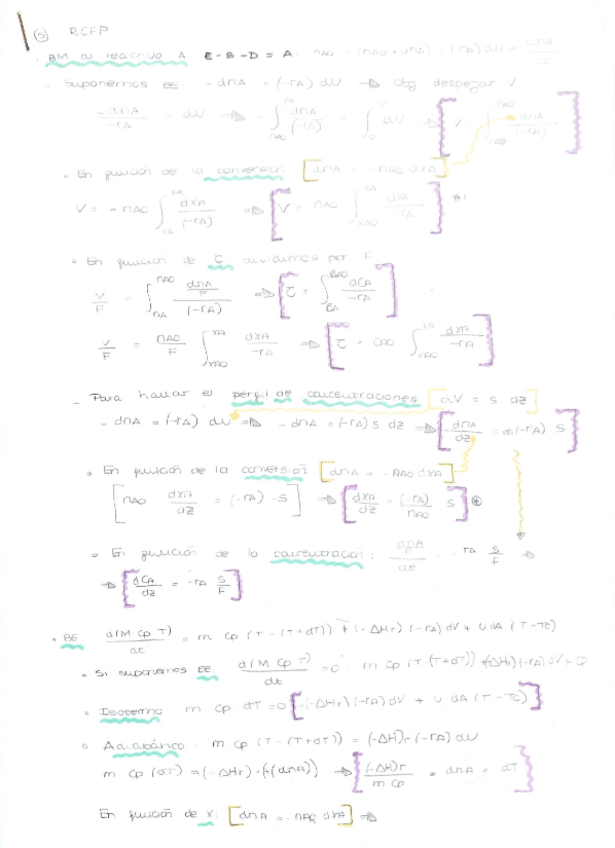 ⑤ RCFP
BM al reactivo A E - S - D = A : nA0 - (nA0 + dnA) - (-rA) dV = dnA/dt
Suponemos EE: - dnA = (-rA) dV ⇒ Obj despejar V
- dnA/-rA = dV ⇒ - ∫ nA0 nA dnA/(-rA) = ∫ 0 V dV ⇒ [V = ∫ nA nA0 dnA/(-rA)]
• En función de la conversión [dnA = - nA0 dXA]
V = - nA0 ∫ XA XA0 dXA/(-rA) ⇒ [V = nA0 ∫ XA0 XA dXA/-rA] *1
• En función de τ dividimos por F
V/F = ∫ nA nA0 dnA/F/(-rA) ⇒ [τ = ∫ CA CA0 dCA/-rA]
V/F = nA0/F ∫ XA0 XA dXA/-rA ⇒ [τ = CA0 ∫ XA0 XA dXA/-rA]
- Para hallar el perfil de concentraciones [dV = S · dz]
- dnA = (-rA) dV ⇒ - dnA = (-rA) S dz ⇒ [- dnA/dz = (-rA) S]
• En función de la conversión [dnA = - nA0 dXA]
[nA0 dXA/dz = (-rA) · S] ⇒ [dXA/dz = (-rA)/nA0 S] *
• En función de la concentración : dnA/F/dz = - rA S/F ⇒
⇒ [dCA/dz = -rA S/F]
• BE: d(M Cp T)/dt = m Cp (T - (T + dT)) + (-ΔHr) (-rA) dV + U dA (T - Tc)
• Si suponemos EE d(M Cp T)/dt = 0 : m Cp (T - (T + dT)) + (-ΔHr) (-rA) dV + Q
• Isotermo m Cp dT = 0 [(-ΔHr) (-rA) dV + U dA (T - Tc)]
• Adiabático : m Cp (T - (T + dT)) = (-ΔH)r (-rA) dV
m Cp (dT) = (-ΔHr) · (-(dnA)) ⇒ [(-ΔH)r/m Cp · dnA = dT]
En función de X: [dnA = - nA0 dXA] ⇒